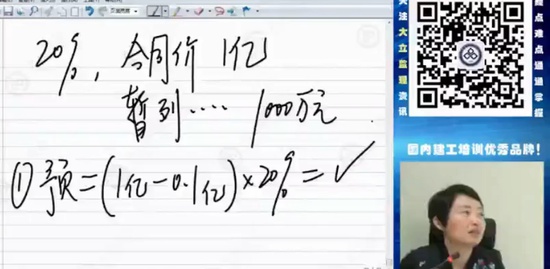 20%, 合同价 1亿
暂列···· 1000万元
①预=(1亿-0.1亿)×20%=✓
关注大立监理资讯
重点难点通通掌握
国内建工培训优秀品牌!